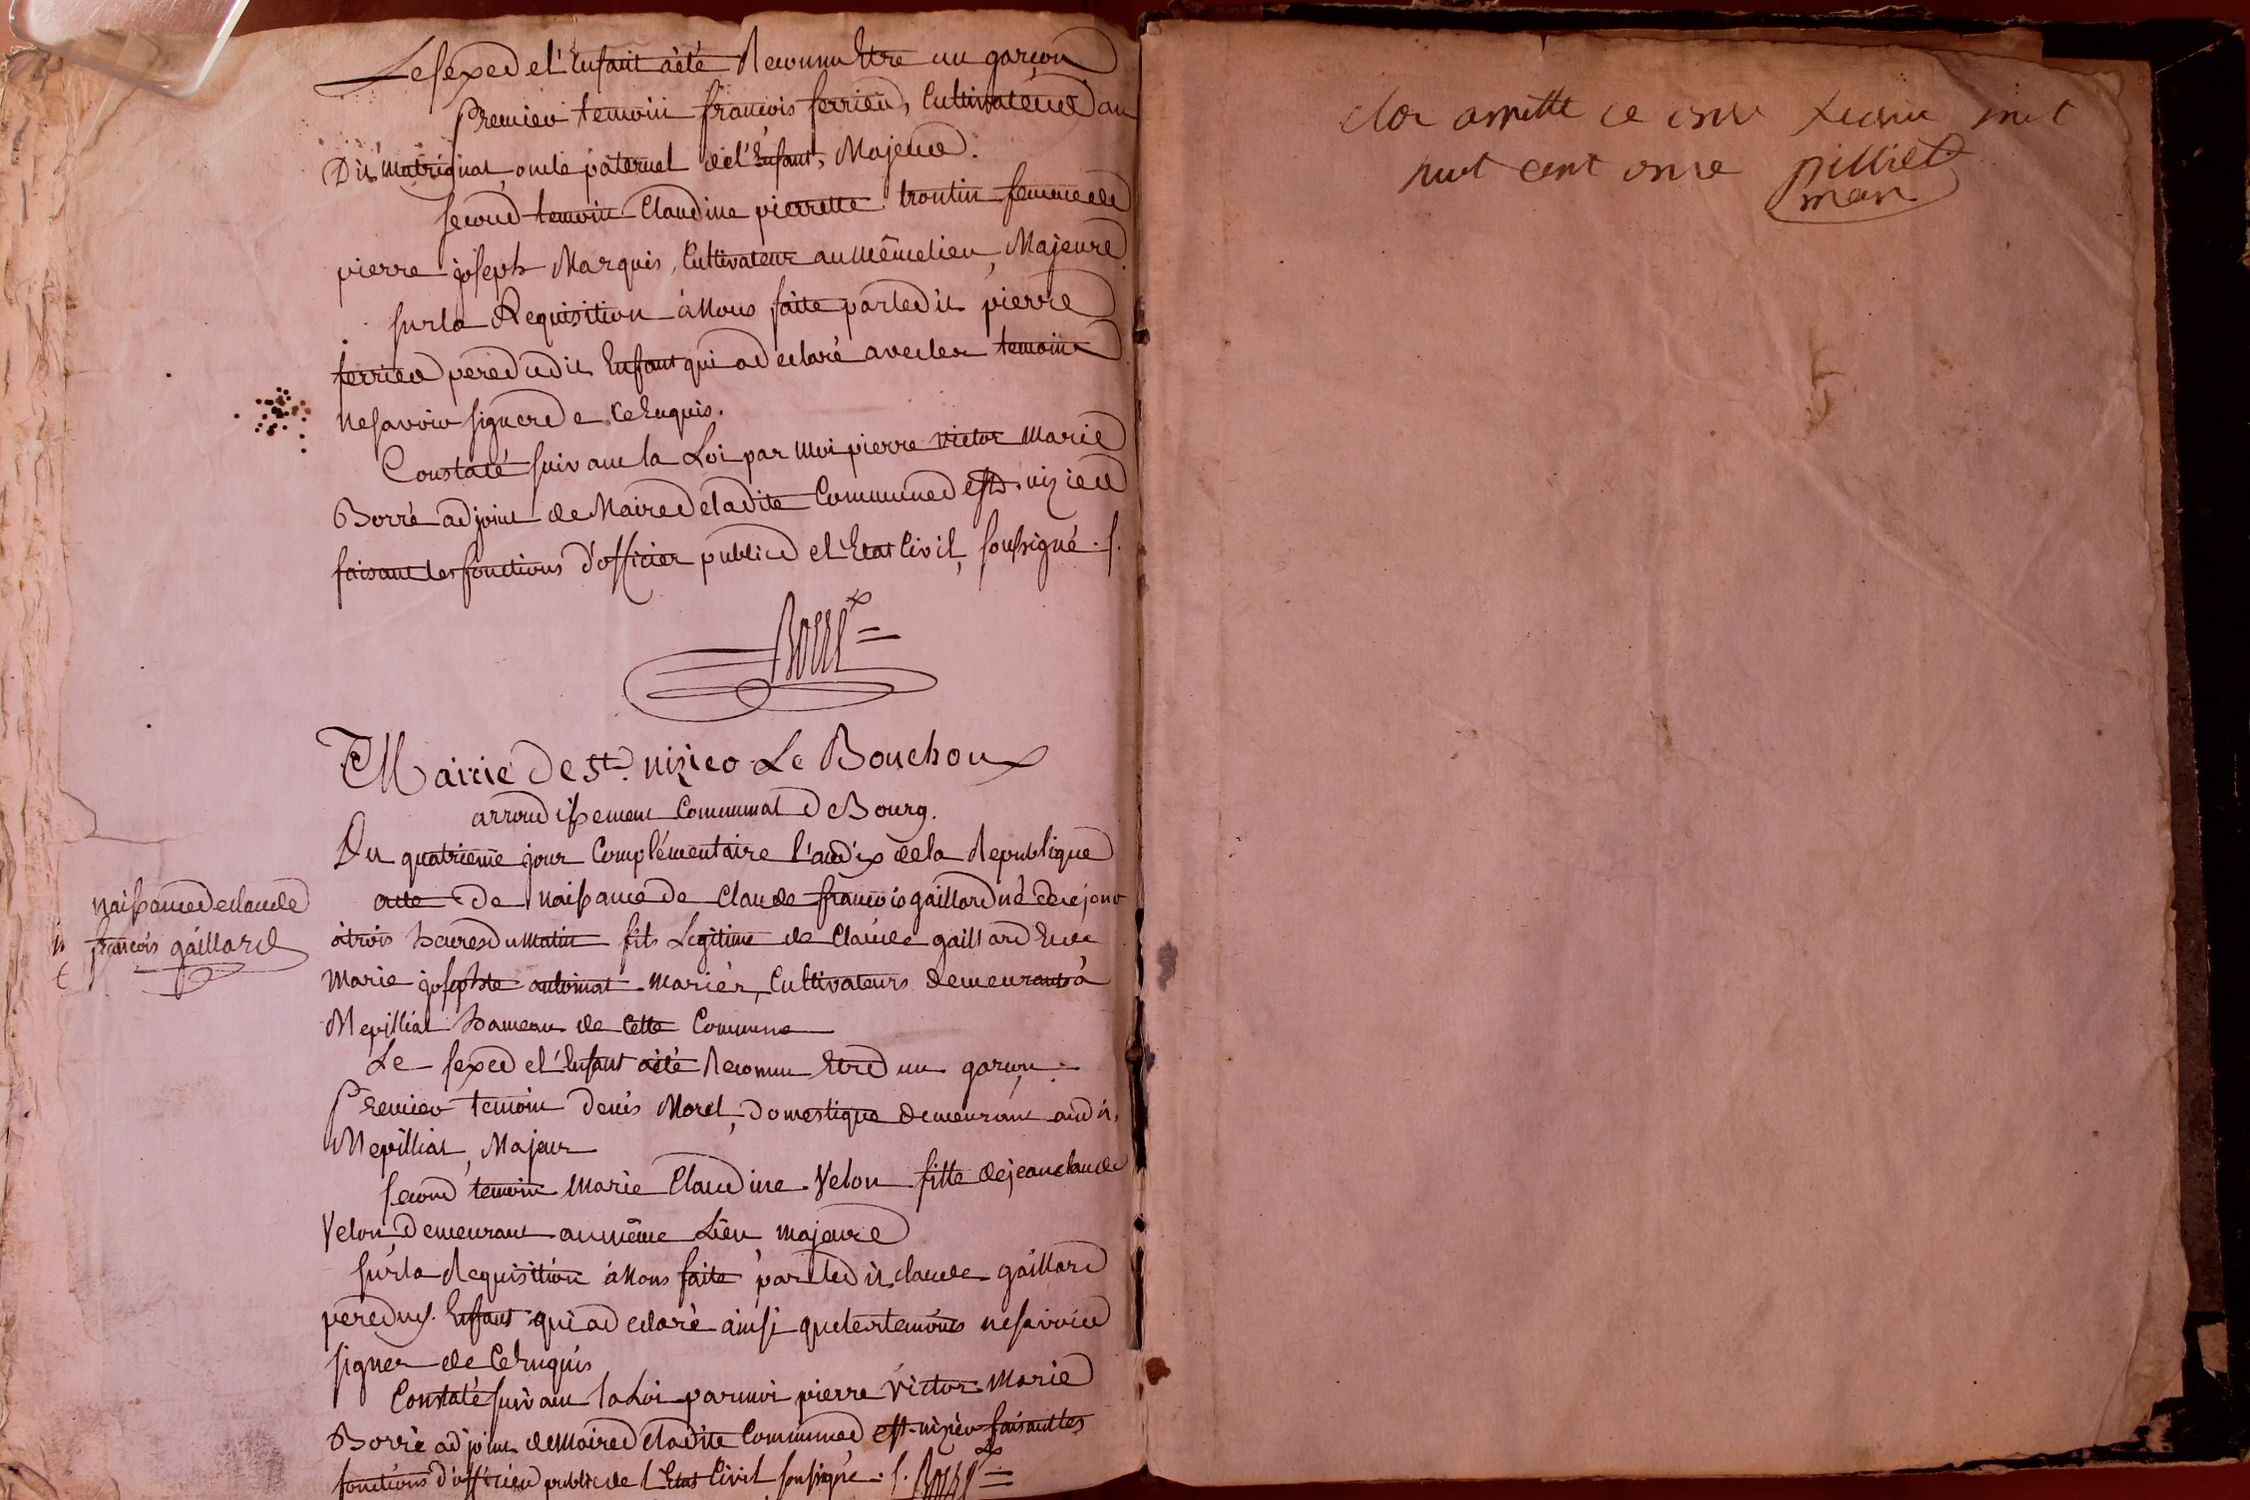 Le sexe de l'Enfant à été Reconnu Etre un garçon
Premier temoin françois ferrier, Cultivateur au
Dit Matrignat, oncle paternel de l'Enfant, Majeur.
second temoin Claudine pierrette trontin femme de
pierre joseph Marquis, Cultivateur au même lieu, Majeure
sur la Requisition à Nous faite par le dit pierre
ferrier pere du dit Enfant qui a declaré avec les temoins
ne savoir signer de Ce Enquis.
Constaté suivant la Loi par Moi pierre victor Marie
Borré adjoint de Maire de la dite Commune de st. nizier
faisant les fonctions d'officier public de l'Etat Civil, soussigné .
Borré
Mairie de St. nizier Le Bouchoux
arrondissement Communal De Bourg.
Du quatrieme jour Complémentaire l'an dix de la Republique
acte de Naissance de Claude françois gaillard né ce jour
à trois heures du Matin fils Legitime de Claude gaillard et de
Marie josephte mariés, Cultivateurs demeurants à
Mepilliat hameau de Cette Commune
Le sexe de l'Enfant à été Reconnu Etre un garçon
Premier temoin denis Morel, Domestique demeurant au dit
Mepilliat, Majeur
second temoin Marie Claudine Velon fille de jean claude
Velon, demeurant au même Lieu, majeure
sur la Requisition à Nous faite par le dit claude gaillard
pere du s. Enfant qui a declaré ainsi que les temoins ne savoir
signer de Ce Enquis
Constaté suivant la Loi par moi pierre Victor Marie
Borré adjoint de Maire de la dite Commune de st. nizier faisant les
fonctions d'officier public de l'Etat Civil soussigné . Borré
naissance de claude
françois gaillard
clos arretté ce janvier mil
huit cent onze pilliet